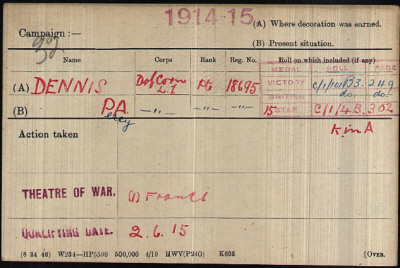 1914-15
(A) Where decoration was earned.
Campaign :—
(B) Present situation.
Name Corps Rank Reg. No. Roll on which included (if any)
MEDAL ROLL PAGE
(A) DENNIS D of Corn Pte 18695 VICTORY C/1/101 B3 249
L.I. BRITISH do. do.
(B) PA —"— —"— —"— 15 STAR C/1/4 B. 302
Percy
Action taken K in A
THEATRE OF WAR. (1) France
QUALIFYING DATE. 2.6.15
(6 34 46) W234—HP5590 500,000 4/19 HWV(P240) K608 [OVER.